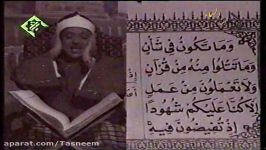 وَمَا تَكُونُ فِي شَأْنٍ
وَمَا تَتْلُوا مِنْهُ مِنْ قُرْآنٍ
وَلَا تَعْمَلُونَ مِنْ عَمَلٍ
إِلَّا كُنَّا عَلَيْكُمْ شُهُودًا
إِذْ تُفِيضُونَ فِيهِ
aparat.com/Tasneem
aparat.com/Tasneem